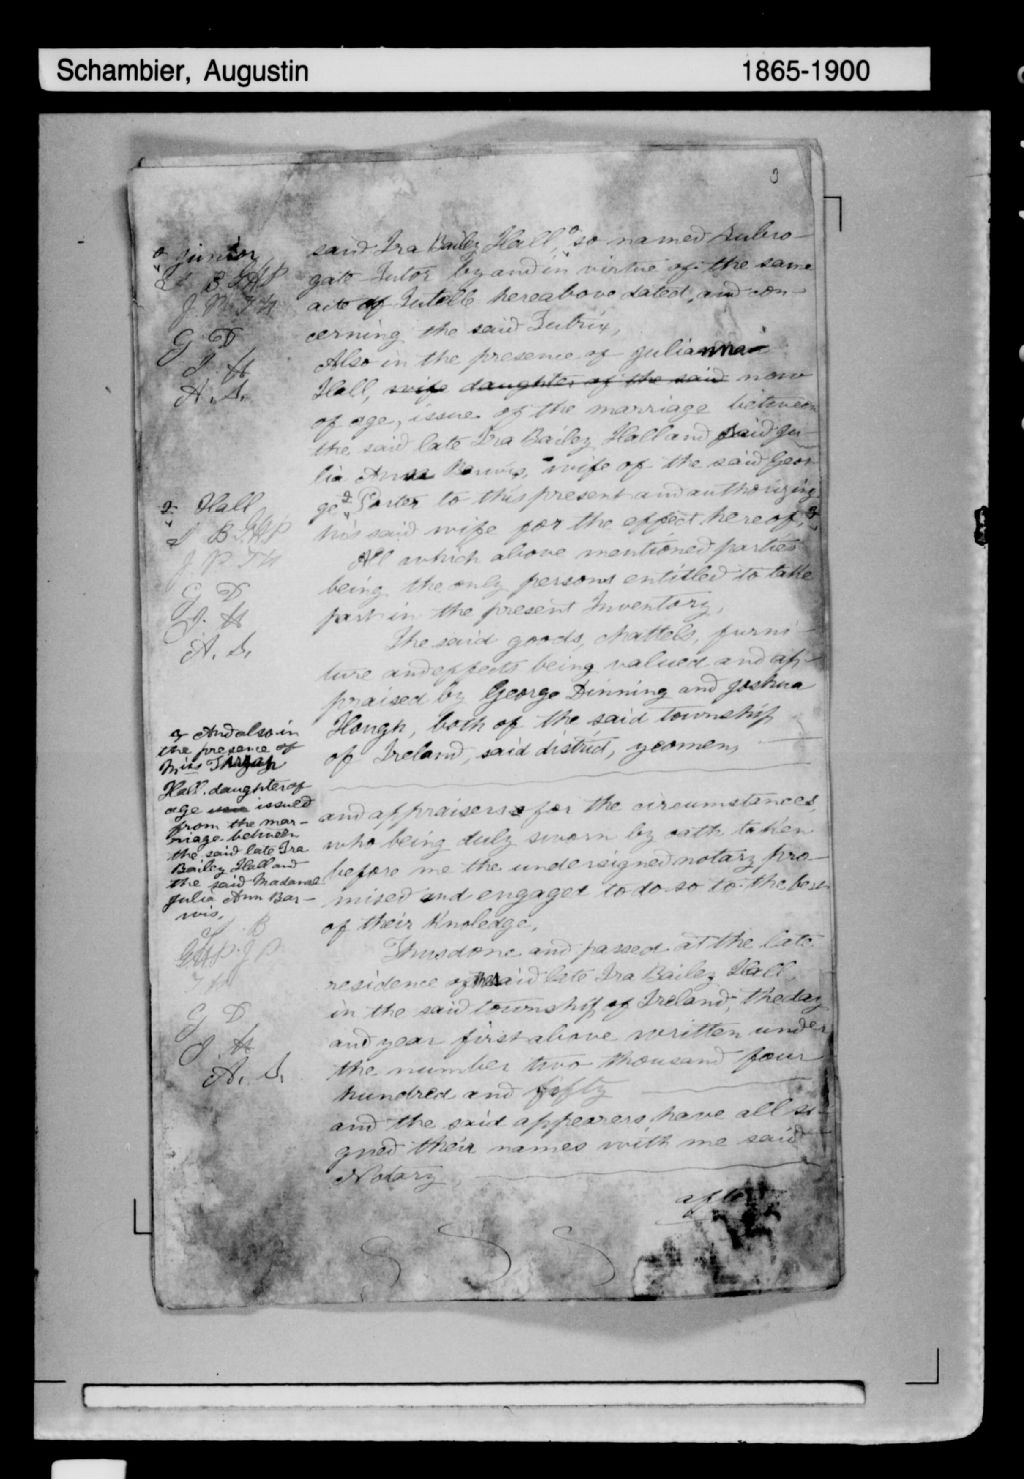 Schambier, Augustin 1865-1900
3
said Ira Bailey Hall, so named Subro-
gate Tutor by and in virtue of the same
acte of Tutelle hereabove dated, and con-
cerning the said Tutrix,
Also in the presence of Julianna
Hall, wife daughter of the said now
of age, issue of the marriage between
the said late Ira Bailey Hall and said Ju-
lia Ann Barvis, wife of the said Geor
ge Porter to this present and authorizing
his said wife for the effect hereof,
All which above mentioned parties
being the only persons entitled to take
part in the present Inventory,
The said goods, chattels, furni-
ture and effects being valued and ap-
praised by George Dinning and Joshua
Hough, both of the said township
of Ireland, said district, yeomen,
and appraisers for the circumstances,
who being duly sworn by oath taken
before me the undersigned notary pro-
mised and engaged to do so to the best
of their Knoledge,
Thus done and passed at the late
residence of the said late Ira Bailey Hall,
in the said township of Ireland, the day
and year first above written under
the number two thousand four
hundred and fifty
and the said appearers have all si-
gned their names with me said
Notary,
after
junior
J. B. G. H. P.
J. P. T. H
G D
J. H
A. S.
Hall
J. B. G. H. P.
J. P. T. H
G D
J. H
A. S.
And also in
the presence of
Miss
Hall daughter of
age issued
from the mar-
riage between
the said late Ira
Bailey Hall and
the said Madame
Julia Ann Bar-
vis,
J. B
G. H. P. J. P
T. H
G D
J. H
A. S.